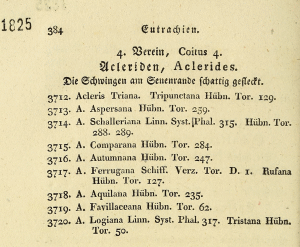 1825
384 Eutrachien.
4. Verein, Coitus 4.
Acleriden, Aclerides.
Die Schwingen am Seuenrande schattig gefleckt.
3712. Acleris Triana. Tripunctana Hübn. Tor. 129.
3713. A. Aspersana Hübn. Tor. 259.
3714. A. Schalleriana Linn. Syst. Phal. 315. Hübn. Tor.
288. 289.
3715. A. Comparana Hübn. Tor. 284.
3716. A. Autumnana Hübn. Tor. 247.
3717. A. Ferrugana Schiff. Verz. Tor. D. 1. Rufana
Hübn. Tor. 127.
3718. A. Aquilana Hübn. Tor. 235.
3719. A. Favillaceana Hübn. Tor. 62.
3720. A. Logiana Linn. Syst. Phal. 317. Tristana Hübn.
Tor. 50.